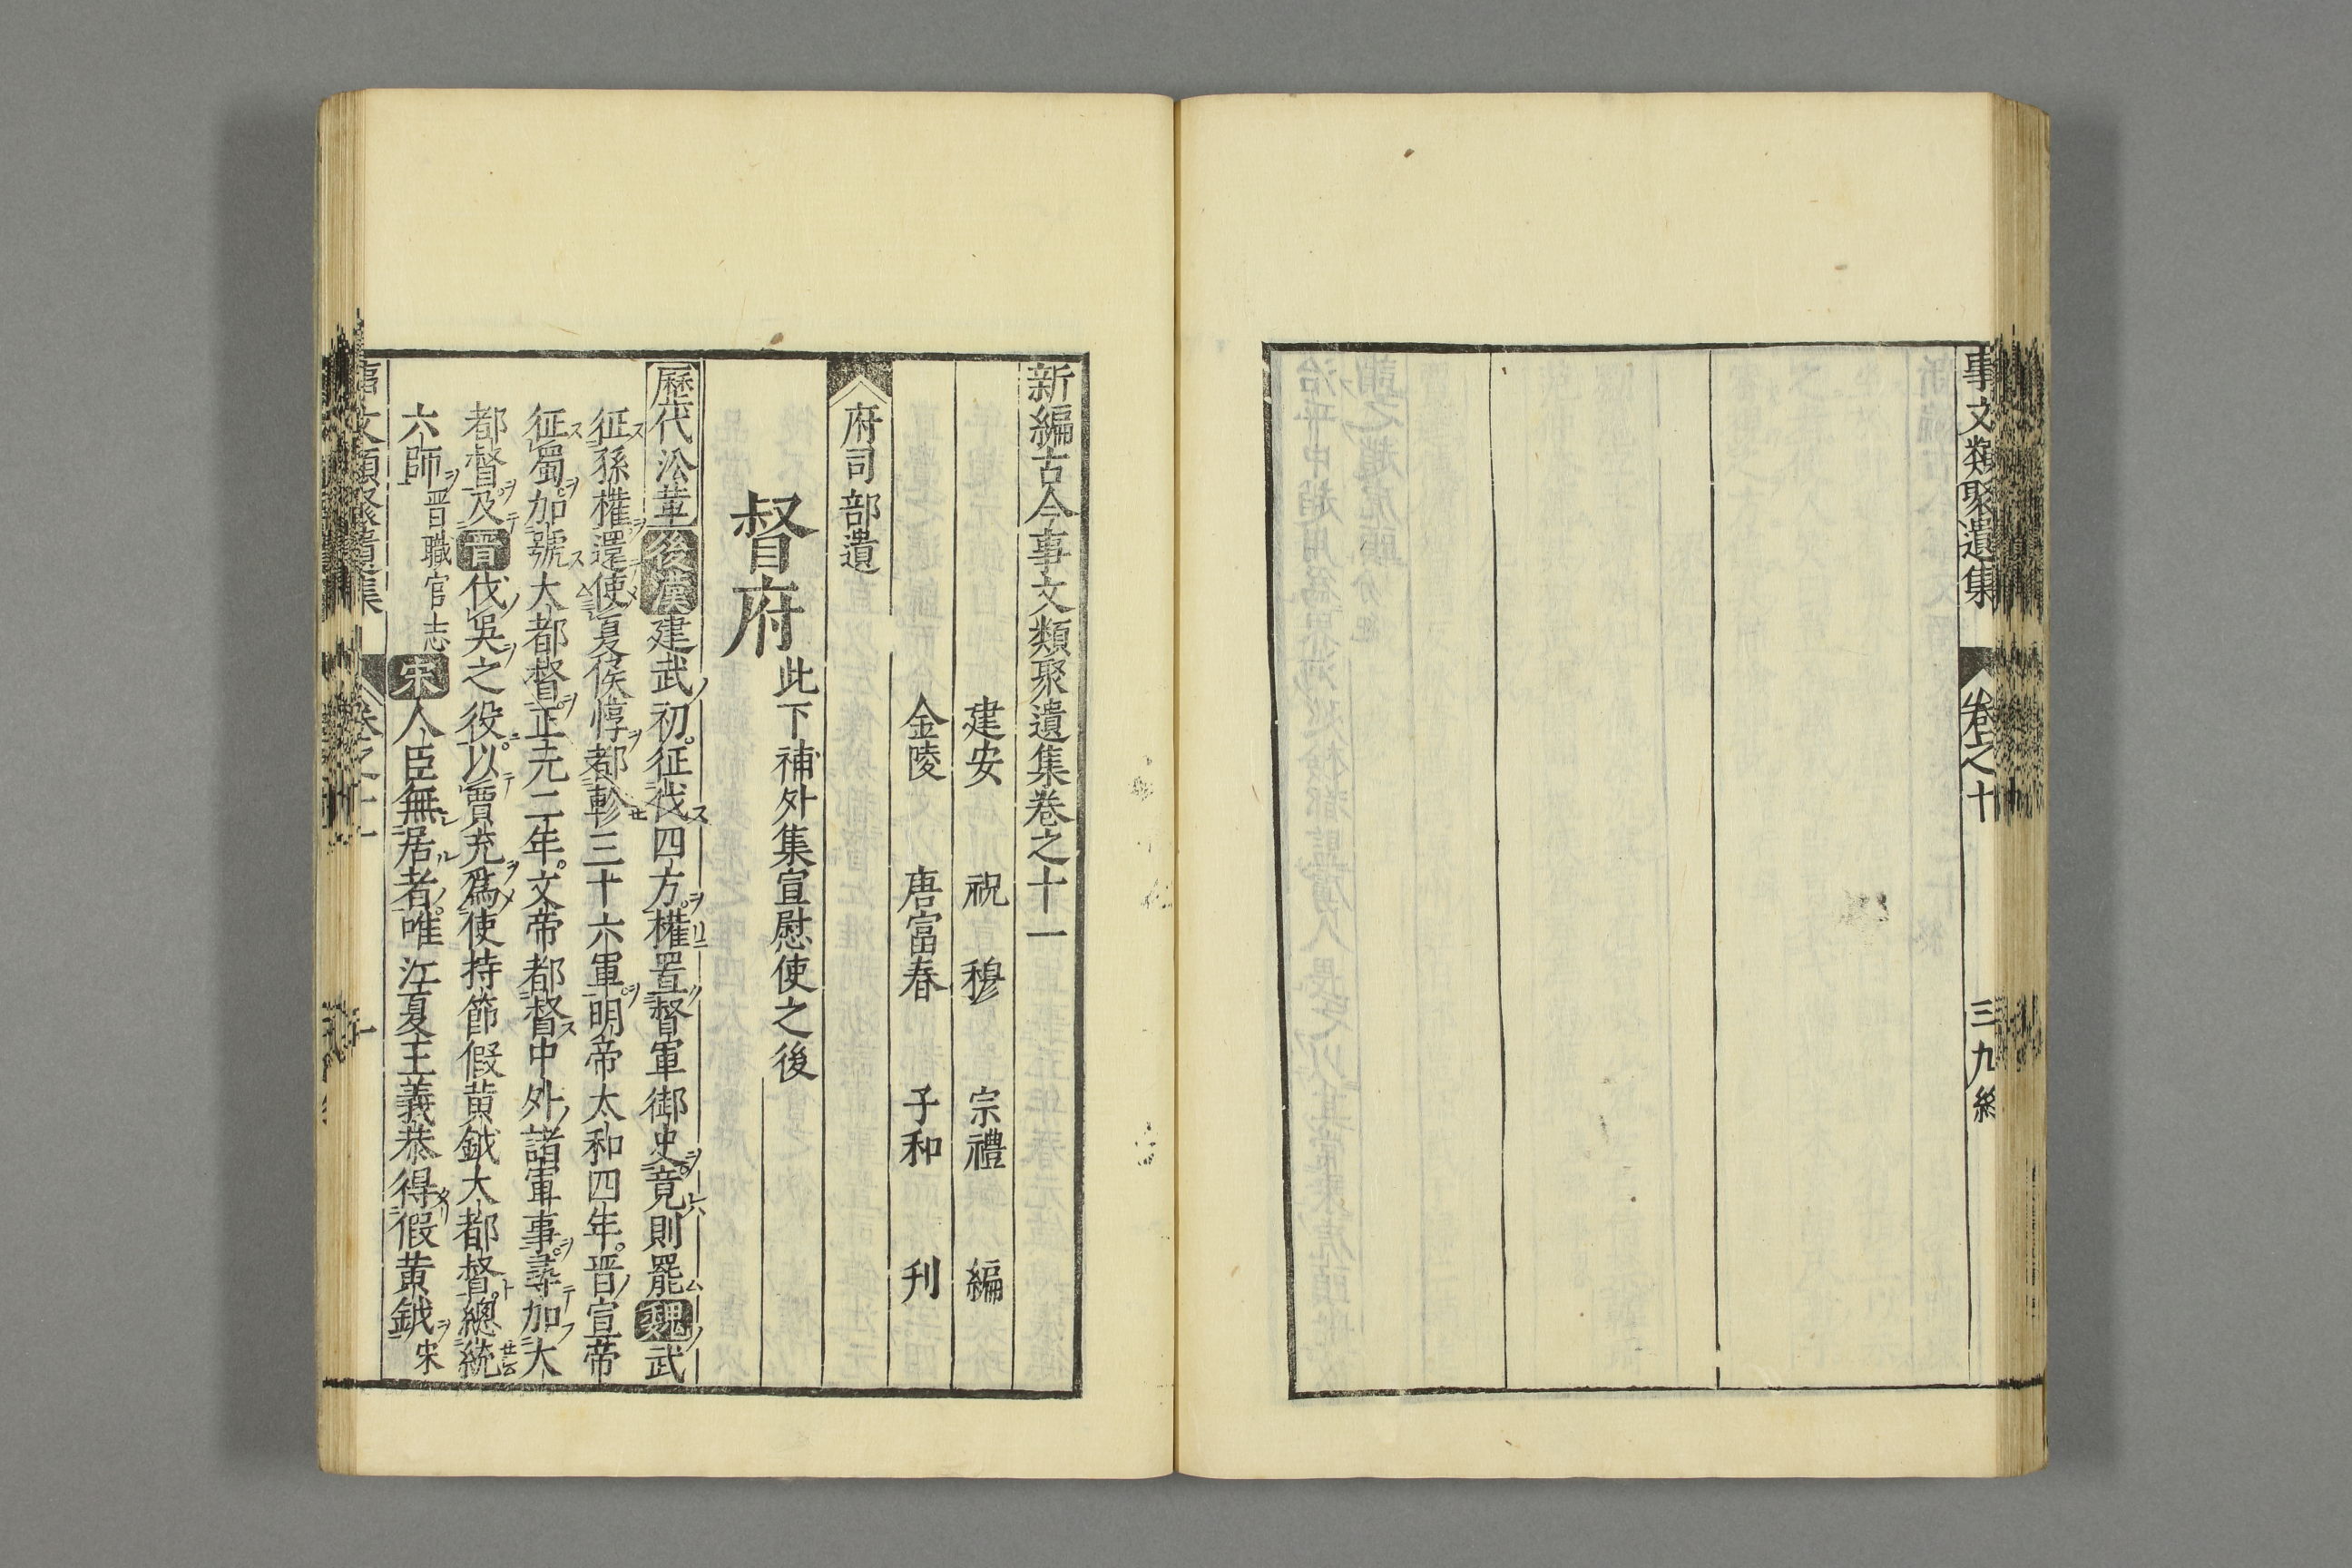 事文類聚遺集 卷之十 三九終
新編古今事文類聚遺集卷之十一
建安 祝 穆 宗禮 編
金陵 唐富春 子和 刊
府司部遺
督府此下補外集宣慰使之後
歷代沿革後漢建武初。征伐四方。權置督軍御史。竟則罷魏武
征孫權還使夏侯惇都軫三十六軍。明帝太和四年。晋宣帝
征蜀。加號大都督。正元二年。文帝都督中外諸軍事。尋加大
都督。及晋伐吳之役。以賈充爲使持節假黃鉞大都督。總統
六師晋職官志宋人臣無居者。唯江夏王義恭得假黃鉞宋
事文類聚遺集 卷之十一 一